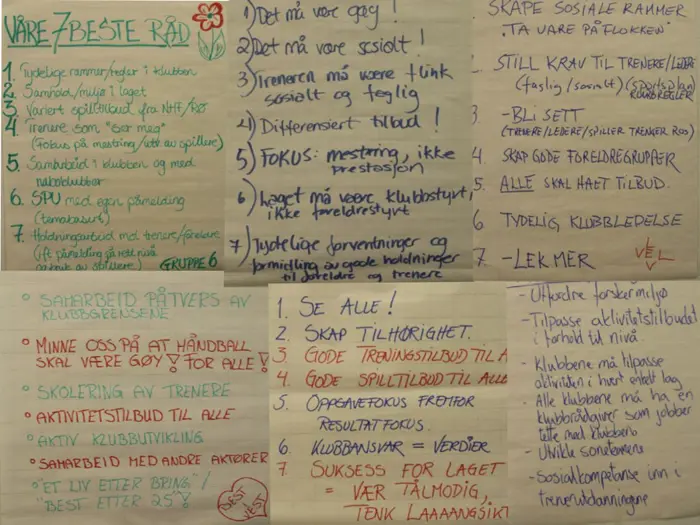 VÅRE 7 BESTE RÅD
1. Tydelige rammer/regler i klubben
2. Samhold/miljø i laget
3. Variert spilltilbud fra NHF/Reg
4. Trenere som "bør meg"
(Fokus på mestring/utb av spillere)
5. Samarbeid i klubben og med
naboklubber
6. SPU med egen påmelding
(temakurs)
7. Holdningsarbeid mot trenere/foreldre
(ift påmelding på rett nivå
og bruk av spillere)
GRUPPE 6
1) Det må være gøy!
2) Det må være sosialt!
3) Treneren må være flink
sosialt og faglig
4) Differensiert tilbud!
5) FOKUS: mestring, ikke
prestasjon
6) Laget må være klubbstyrt,
ikke foreldrestyrt
7) Tydelige forventninger og
formidling av gode holdninger
til foreldre og trenere
SKAPE SOSIALE RAMMER
"TA VARE PÅ FLOKKEN"
- STILL KRAV TIL TRENERE/LEDERE
(faglig/sosialt) (SPORTSPLAN
KLUBBREGLER)
3. - BLI SETT
(TRENERE/LEDERE/SPILLER TRENGER ROS)
4. SKAP GODE FORELDREGRUPPER
5. ALLE SKAL HA ET TILBUD.
6 TYDELIG KLUBBLEDELSE
7 - LEK MER
VEL
° SAMARBEID PÅ TVERS AV
KLUBBGRENSENE
° MINNE OSS PÅ AT HÅNDBALL
SKAL VÆRE GØY! FOR ALLE!
° SKOLERING AV TRENERE
° AKTIVITETSTILBUD TIL ALLE
° AKTIV KLUBBUTVIKLING
° SAMARBEID MED ANDRE AKTØRER
° "ET LIV ETTER BRING"/
"BEST ETTER 25"!
BEST
VEST
1. SE ALLE!
2. SKAP TILHØRIGHET.
3 GODE TRENINGSTILBUD TIL A
4. GODE SPILLTILBUD TIL ALLE
5 OPPGAVEFOKUS FREMFOR
RESULTATFOKUS.
6. KLUBBANSVAR = VERDIER
7 SUKSESS FOR LAGET
= VÆR TÅLMODIG,
TENK LAAAANGSIKT
- Utfordre forskermiljø
- Tilpasse aktivitetstilbudet
i forhold til nivå.
- Klubbene må tilpasse
aktiviteten i hvert enkelt lag
- Alle klubbene må ha en
klubbrådgiver som jobber
tette med klubben
- Utvikle soneteamene
- Sosialkompetanse inn i
trenerutdanningene